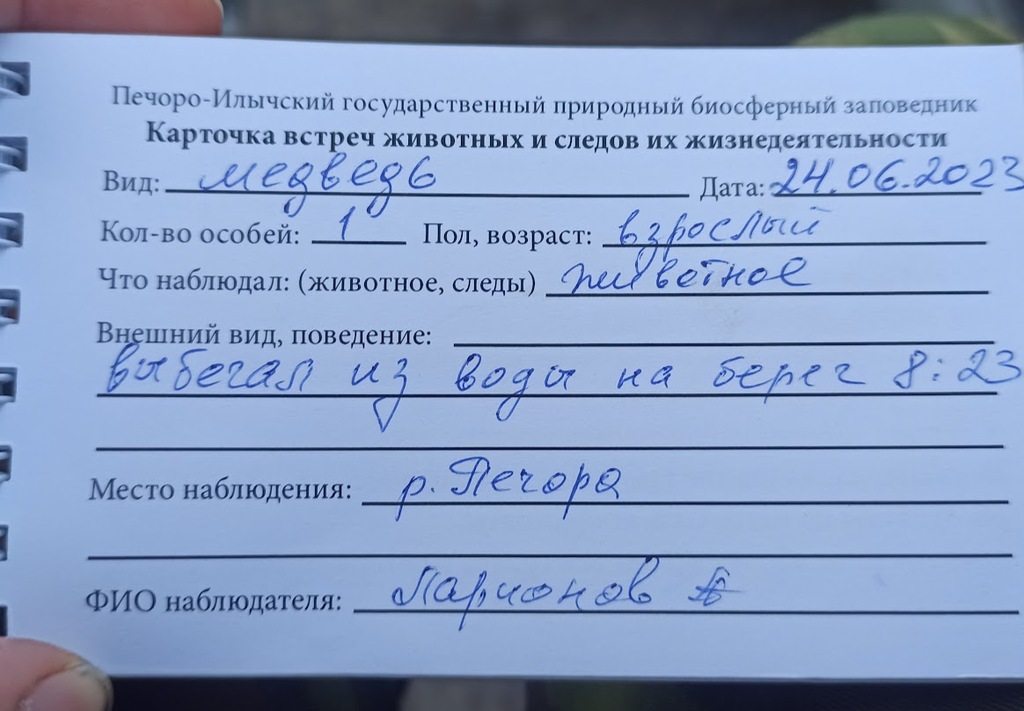 Печоро-Илычский государственный природный биосферный заповедник
Карточка встреч животных и следов их жизнедеятельности
Вид: медведь Дата: 24.06.2023
Кол-во особей: 1 Пол, возраст: взрослый
Что наблюдал: (животное, следы) животное
Внешний вид, поведение:
выбегал из воды на берег 8:23
Место наблюдения: р. Печора
ФИО наблюдателя: Ларионов